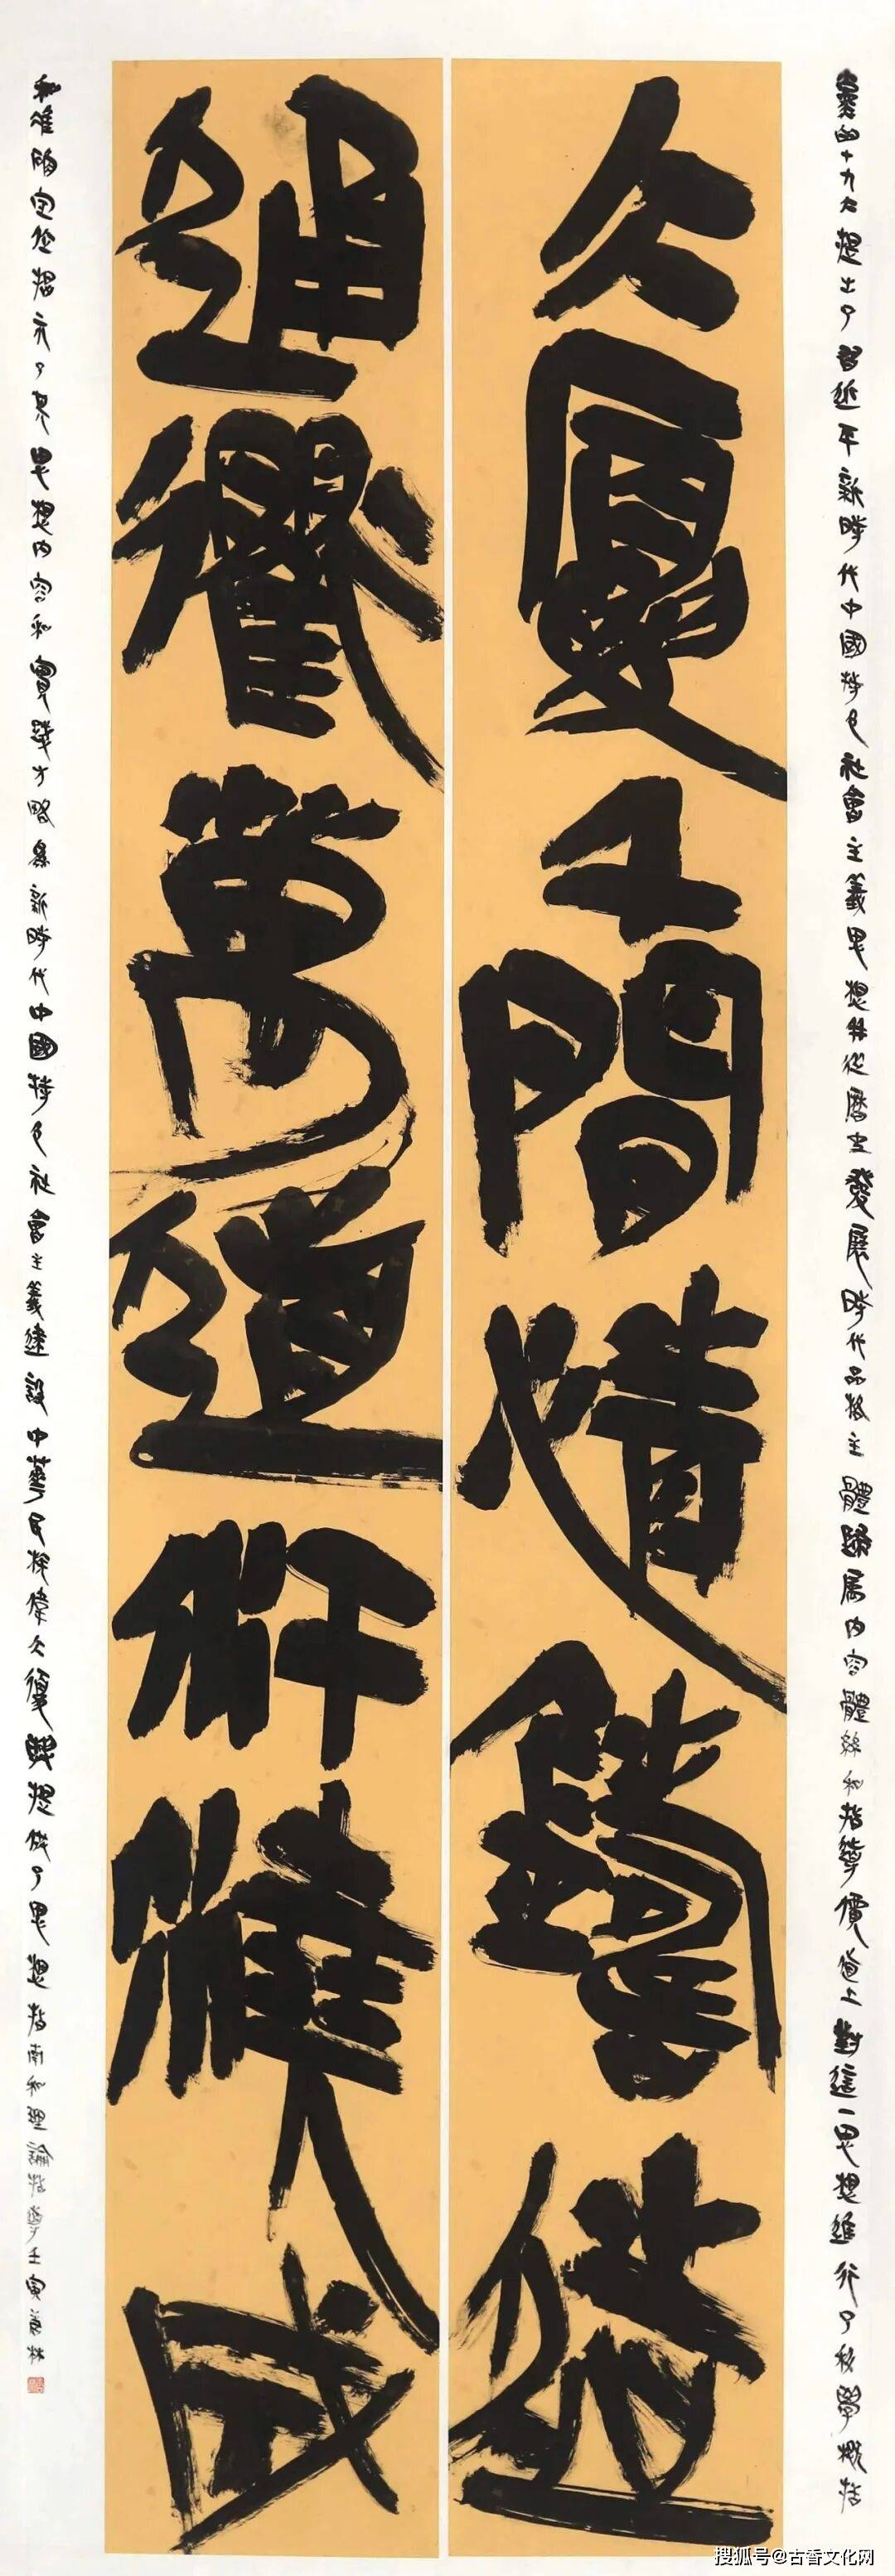 黨的十九大提出了習近平新時代中國特色社會主義思想并從歷史發展時代品格主體歸屬内容體系和指導價值上對這一思想進行了科學概括
大厦千間情鑄造
通衢萬道汗成
和準確定位提示了其思想内容和實踐方略為新時代中國特色社會主義建設中華民族偉大復興提供了思想指南和理論指導壬寅林
搜狐号@古香文化网